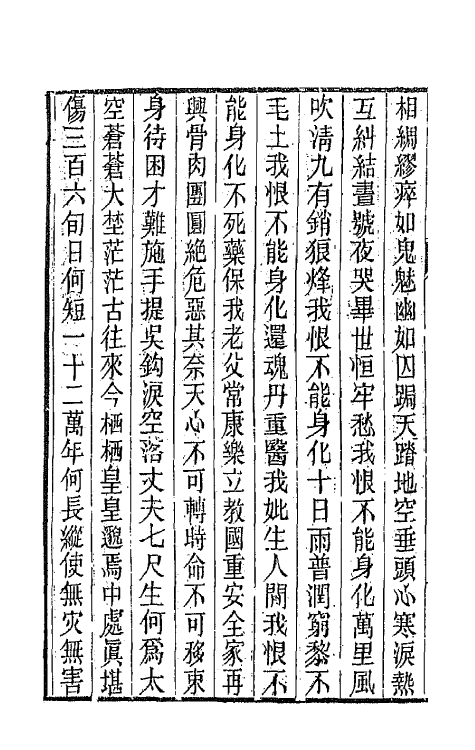 相綢繆瘁如鬼魅幽如囚跼天蹐地空垂頭心寒淚熱
互糾結晝號夜哭畢世恒牢愁我恨不能身化萬里風
吹清九有銷狼烽我恨不能身化十日雨普潤窮黎不
毛土我恨不能身化還魂丹重醫我妣生人間我恨不
能身化不死藥保我老父常康樂立教國重安全家再
興骨肉團圓絶危惡其奈天心不可轉時命不可移束
身待困才難施手提吳鉤淚空落丈夫七尺生何爲太
空蒼蒼大埜茫茫古往來今栖栖皇皇邈焉中處眞堪
傷三百六旬日何短一十二萬年何長縱使無灾無害